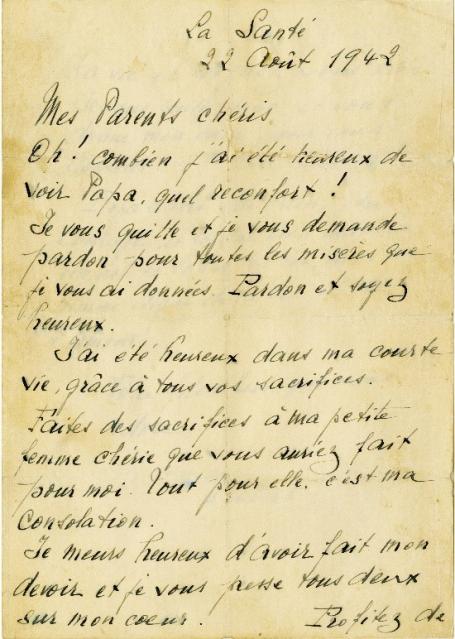 La Santé
22 Août 1942
Mes Parents chéris,
Oh! combien j'ai été heureux de
voir Papa, quel reconfort !
Je vous quitte et je vous demande
pardon pour toutes les misères que
je vous ai données. Pardon et soyez
heureux.
J'ai été heureux dans ma courte
vie, grâce à tous vos sacrifices.
Faites des sacrifices à ma petite
femme chérie que vous auriez fait
pour moi. Tout pour elle, c'est ma
consolation.
Je meurs heureux d'avoir fait mon
devoir et je vous presse tous deux
sur mon coeur. Profitez de